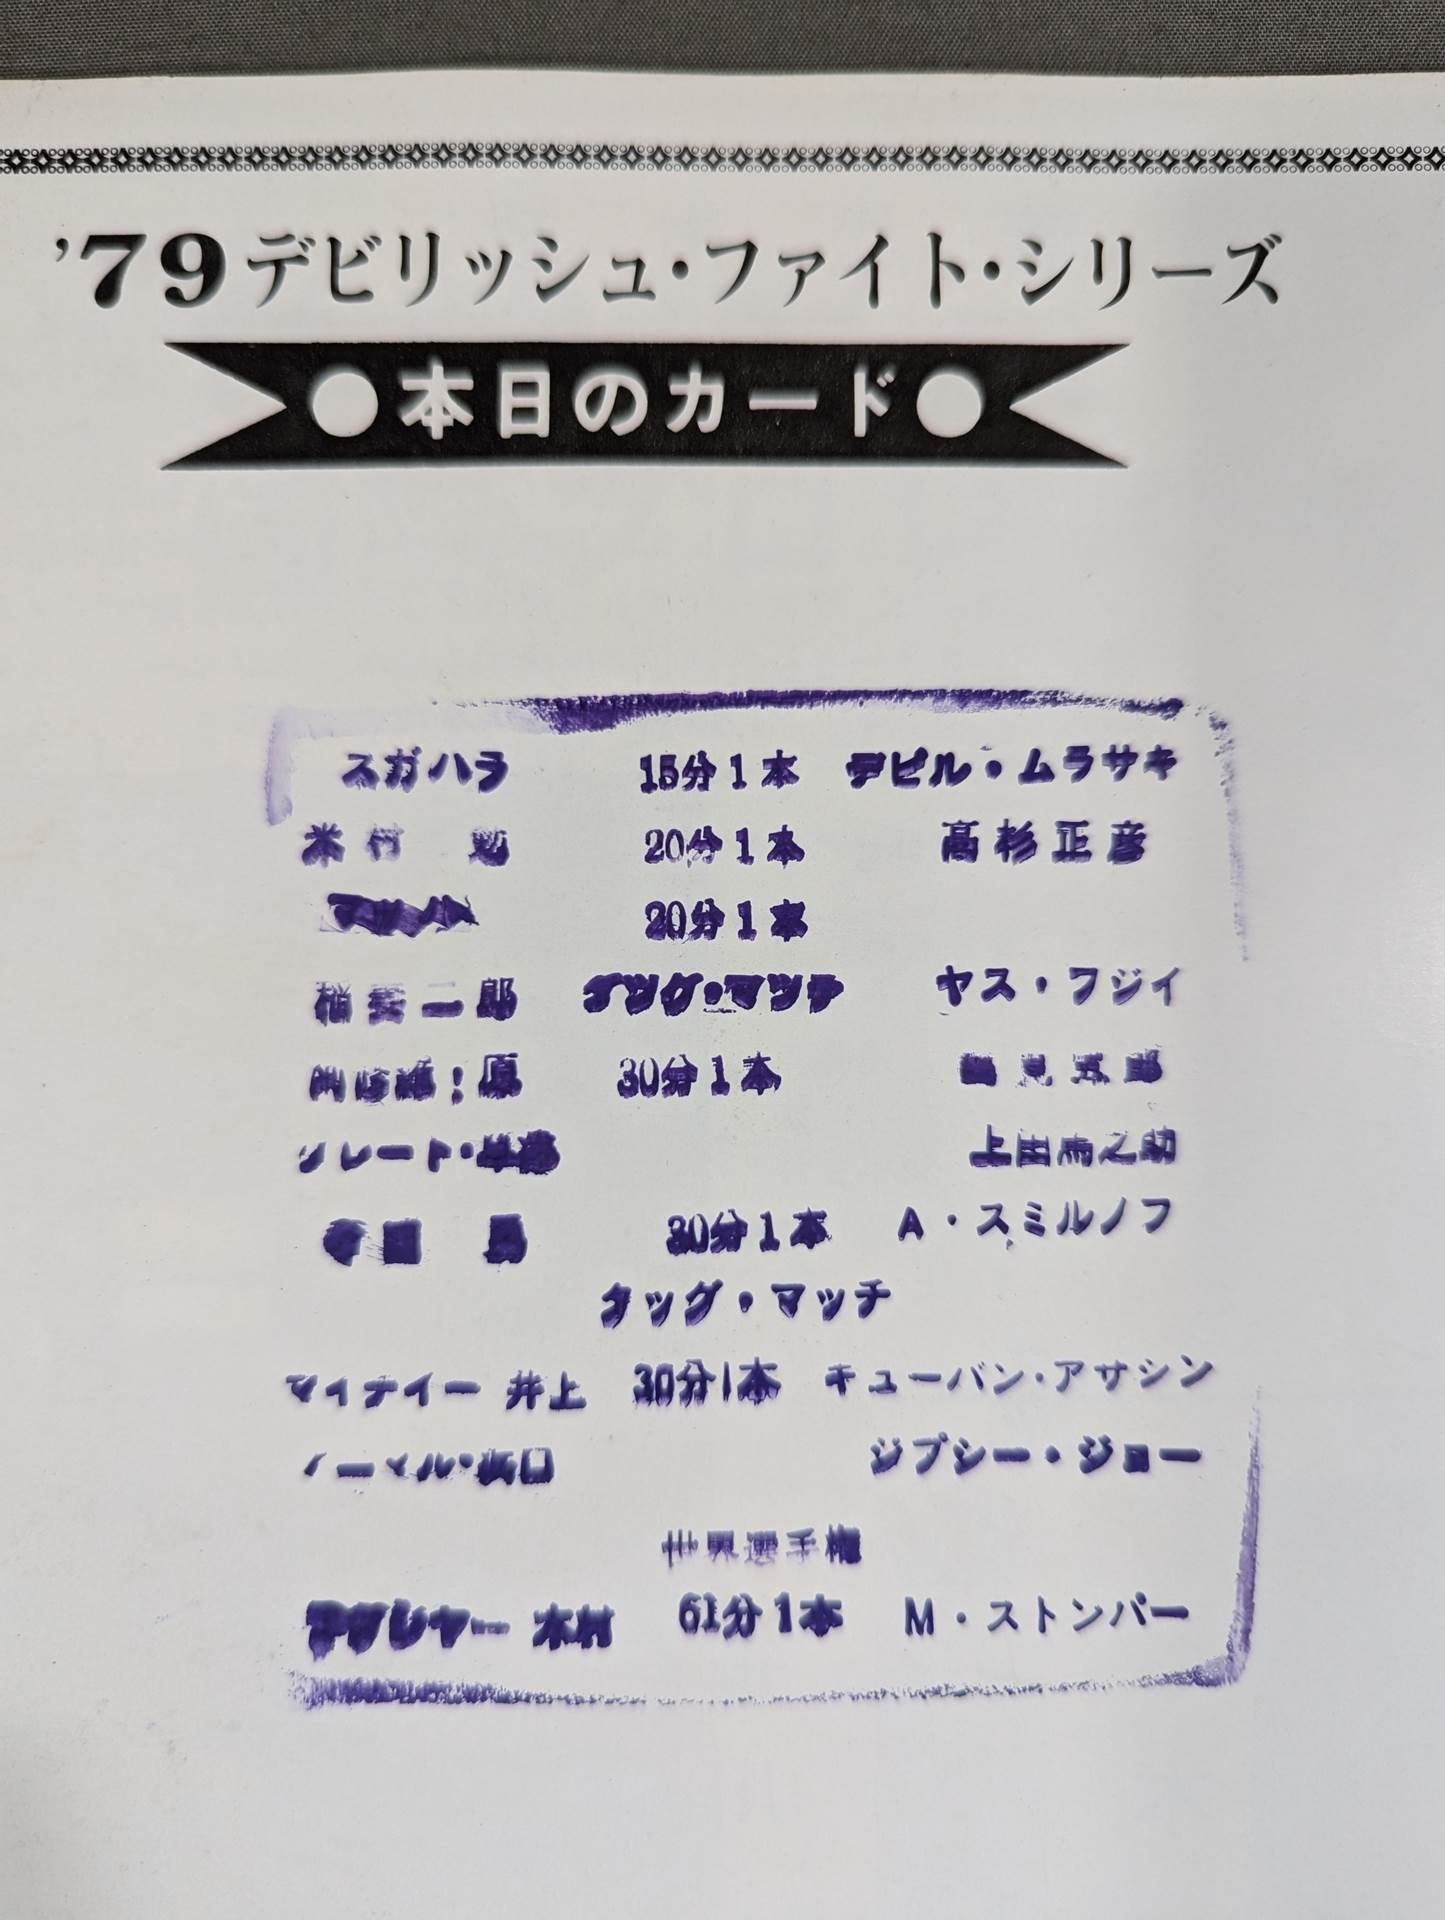 '79デビリッシュ・ファイト・シリーズ
●本日のカード●
スガハラ 15分1本 デビル・ムラサキ
米村 勉 20分1本 高杉正彦
20分1本
稲妻二郎 タッグ・マッチ ヤス・フジイ
阿修羅!原 30分1本 鶴見五郎
グレート・草津 上田馬之助
寺西 勇 30分1本 A・スミルノフ
タッグ・マッチ
マイティー 井上 30分1本 キューバン・アサシン
アニマル・浜口 ジプシー・ジョー
世界選手権
ラッシャー 木村 61分1本 M・ストンパー